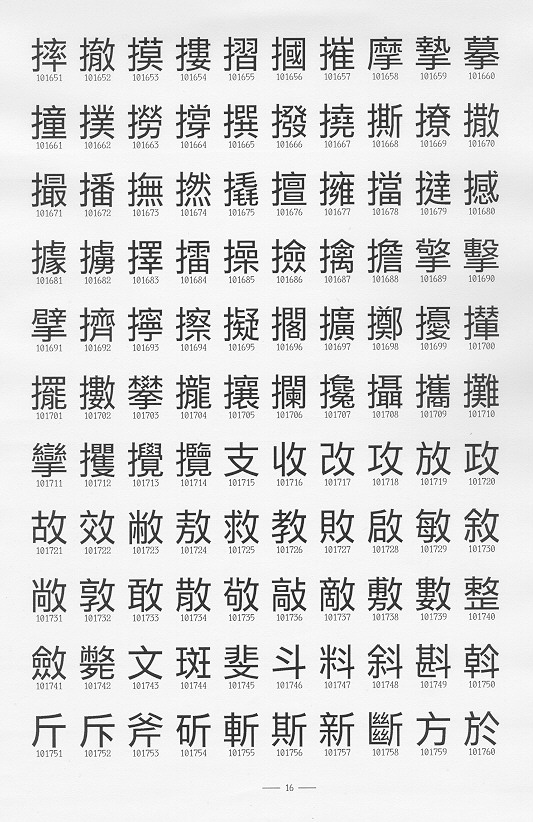 摔 撤 摸 摟 摺 摑 摧 摩 摯 摹
101651 101652 101653 101654 101655 101656 101657 101658 101659 101660
撞 撲 撈 撐 撰 撥 撓 撕 撩 撒
101661 101662 101663 101664 101665 101666 101667 101668 101669 101670
撮 播 撫 撚 撬 擅 擁 擋 撻 撼
101671 101672 101673 101674 101675 101676 101677 101678 101679 101680
據 擄 擇 擂 操 撿 擒 擔 擎 擊
101681 101682 101683 101684 101685 101686 101687 101688 101689 101690
擘 擠 擰 擦 擬 擱 擴 擲 擾 攆
101691 101692 101693 101694 101695 101696 101697 101698 101699 101700
擺 擻 攀 攏 攘 攔 攙 攝 攜 攤
101701 101702 101703 101704 101705 101706 101707 101708 101709 101710
攣 攫 攪 攬 支 收 改 攻 放 政
101711 101712 101713 101714 101715 101716 101717 101718 101719 101720
故 效 敝 敖 救 教 敗 啟 敏 敘
101721 101722 101723 101724 101725 101726 101727 101728 101729 101730
敞 敦 敢 散 敬 敲 敵 敷 數 整
101731 101732 101733 101734 101735 101736 101737 101738 101739 101740
斂 斃 文 斑 斐 斗 料 斜 斟 斡
101741 101742 101743 101744 101745 101746 101747 101748 101749 101750
斤 斥 斧 斫 斬 斯 新 斷 方 於
101751 101752 101753 101754 101755 101756 101757 101758 101759 101760
— 16 —